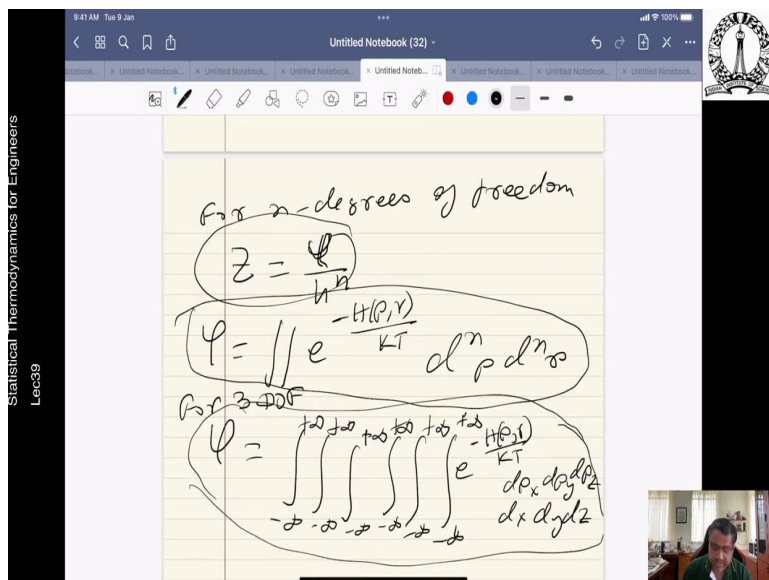 9:41 AM Tue 9 Jan
100%
Untitled Notebook (32)
otebook...
× Untitled Notebook...
× Untitled Notebook...
× Untitled Notebook...
× Untitled Noteb...
× Untitled Notebook...
× Untitled Notebook...
× Untitled Notebook...
Statistical Thermodynamics for Engineers
Lec39
For n-degrees of freedom
Z = φ / hⁿ
φ = ∬ e^(-H(p,r)/KT) dⁿp dⁿr
For 3-DOF
φ = ∫_{-∞}^{+∞} ∫_{-∞}^{+∞} ∫_{-∞}^{+∞} ∫_{-∞}^{+∞} ∫_{-∞}^{+∞} ∫_{-∞}^{+∞} e^(-H(p,r)/KT) dpₓ dp_y dp_z
dx dy dz